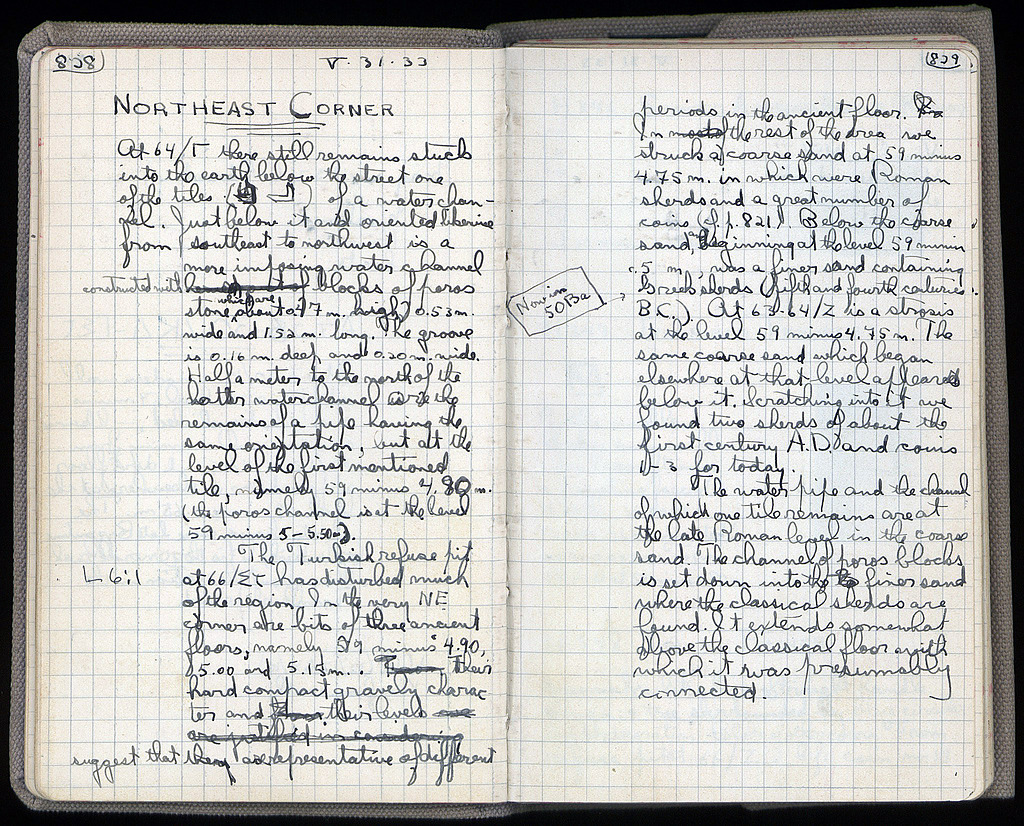 808
V · 31 · 33
NORTHEAST CORNER
At 64/Γ there still remains stuck
into the earth below the street one
of the tiles ( ) of a water chan-
nel. Just below it and oriented likewise
from southeast to northwest is a
more imposing water channel
constructed with blocks of poros
stone which are about 0.77 m. high, 0.53 m.
wide and 1.52 m. long. The groove
is 0.16 m. deep and 0.20 m. wide.
Half a meter to the north of the
latter waterchannel are the
remains of a pipe having the
same orientation, but at the
level of the first mentioned
tile, namely 59 minus 4.80 m.
(the poros channel is at the level
59 minus 5 – 5.50 m).
The Turkish refuse pit
L 6:1
at 66/ΣΤ has disturbed much
of the region. In the very NE
corner are bits of three ancient
floors, namely 59 minus 4.90,
5.00 and 5.15 m.. Their
hard compact gravely charac-
ter and their levels
are justified in considering
suggest that they are representative of different
809
periods in the ancient floor.
In the rest of the area we
struck a coarse sand at 59 minus
4.75 m. in which were Roman
sherds and a great number of
coins (cf. p. 821). Below the coarse
sand, beginning at the level 59 minus
5 m, was a finer sand containing
Greek sherds (fifth and fourth centuries
Now in
50Ba
B.C.). At 63-64/Z is a strosis
at the level 59 minus 4.75 m. The
same coarse sand which began
elsewhere at that level appeared
below it. Scratching into it we
found two sherds of about the
first century A.D. and coins
1-3 for today.
The water pipe and the channel
of which one tile remains are at
the late Roman level in the coarse
sand. The channel of poros blocks
is set down into the finer sand
where the classical sherds are
found. It extends somewhat
above the classical floor with
which it was presumably
connected.